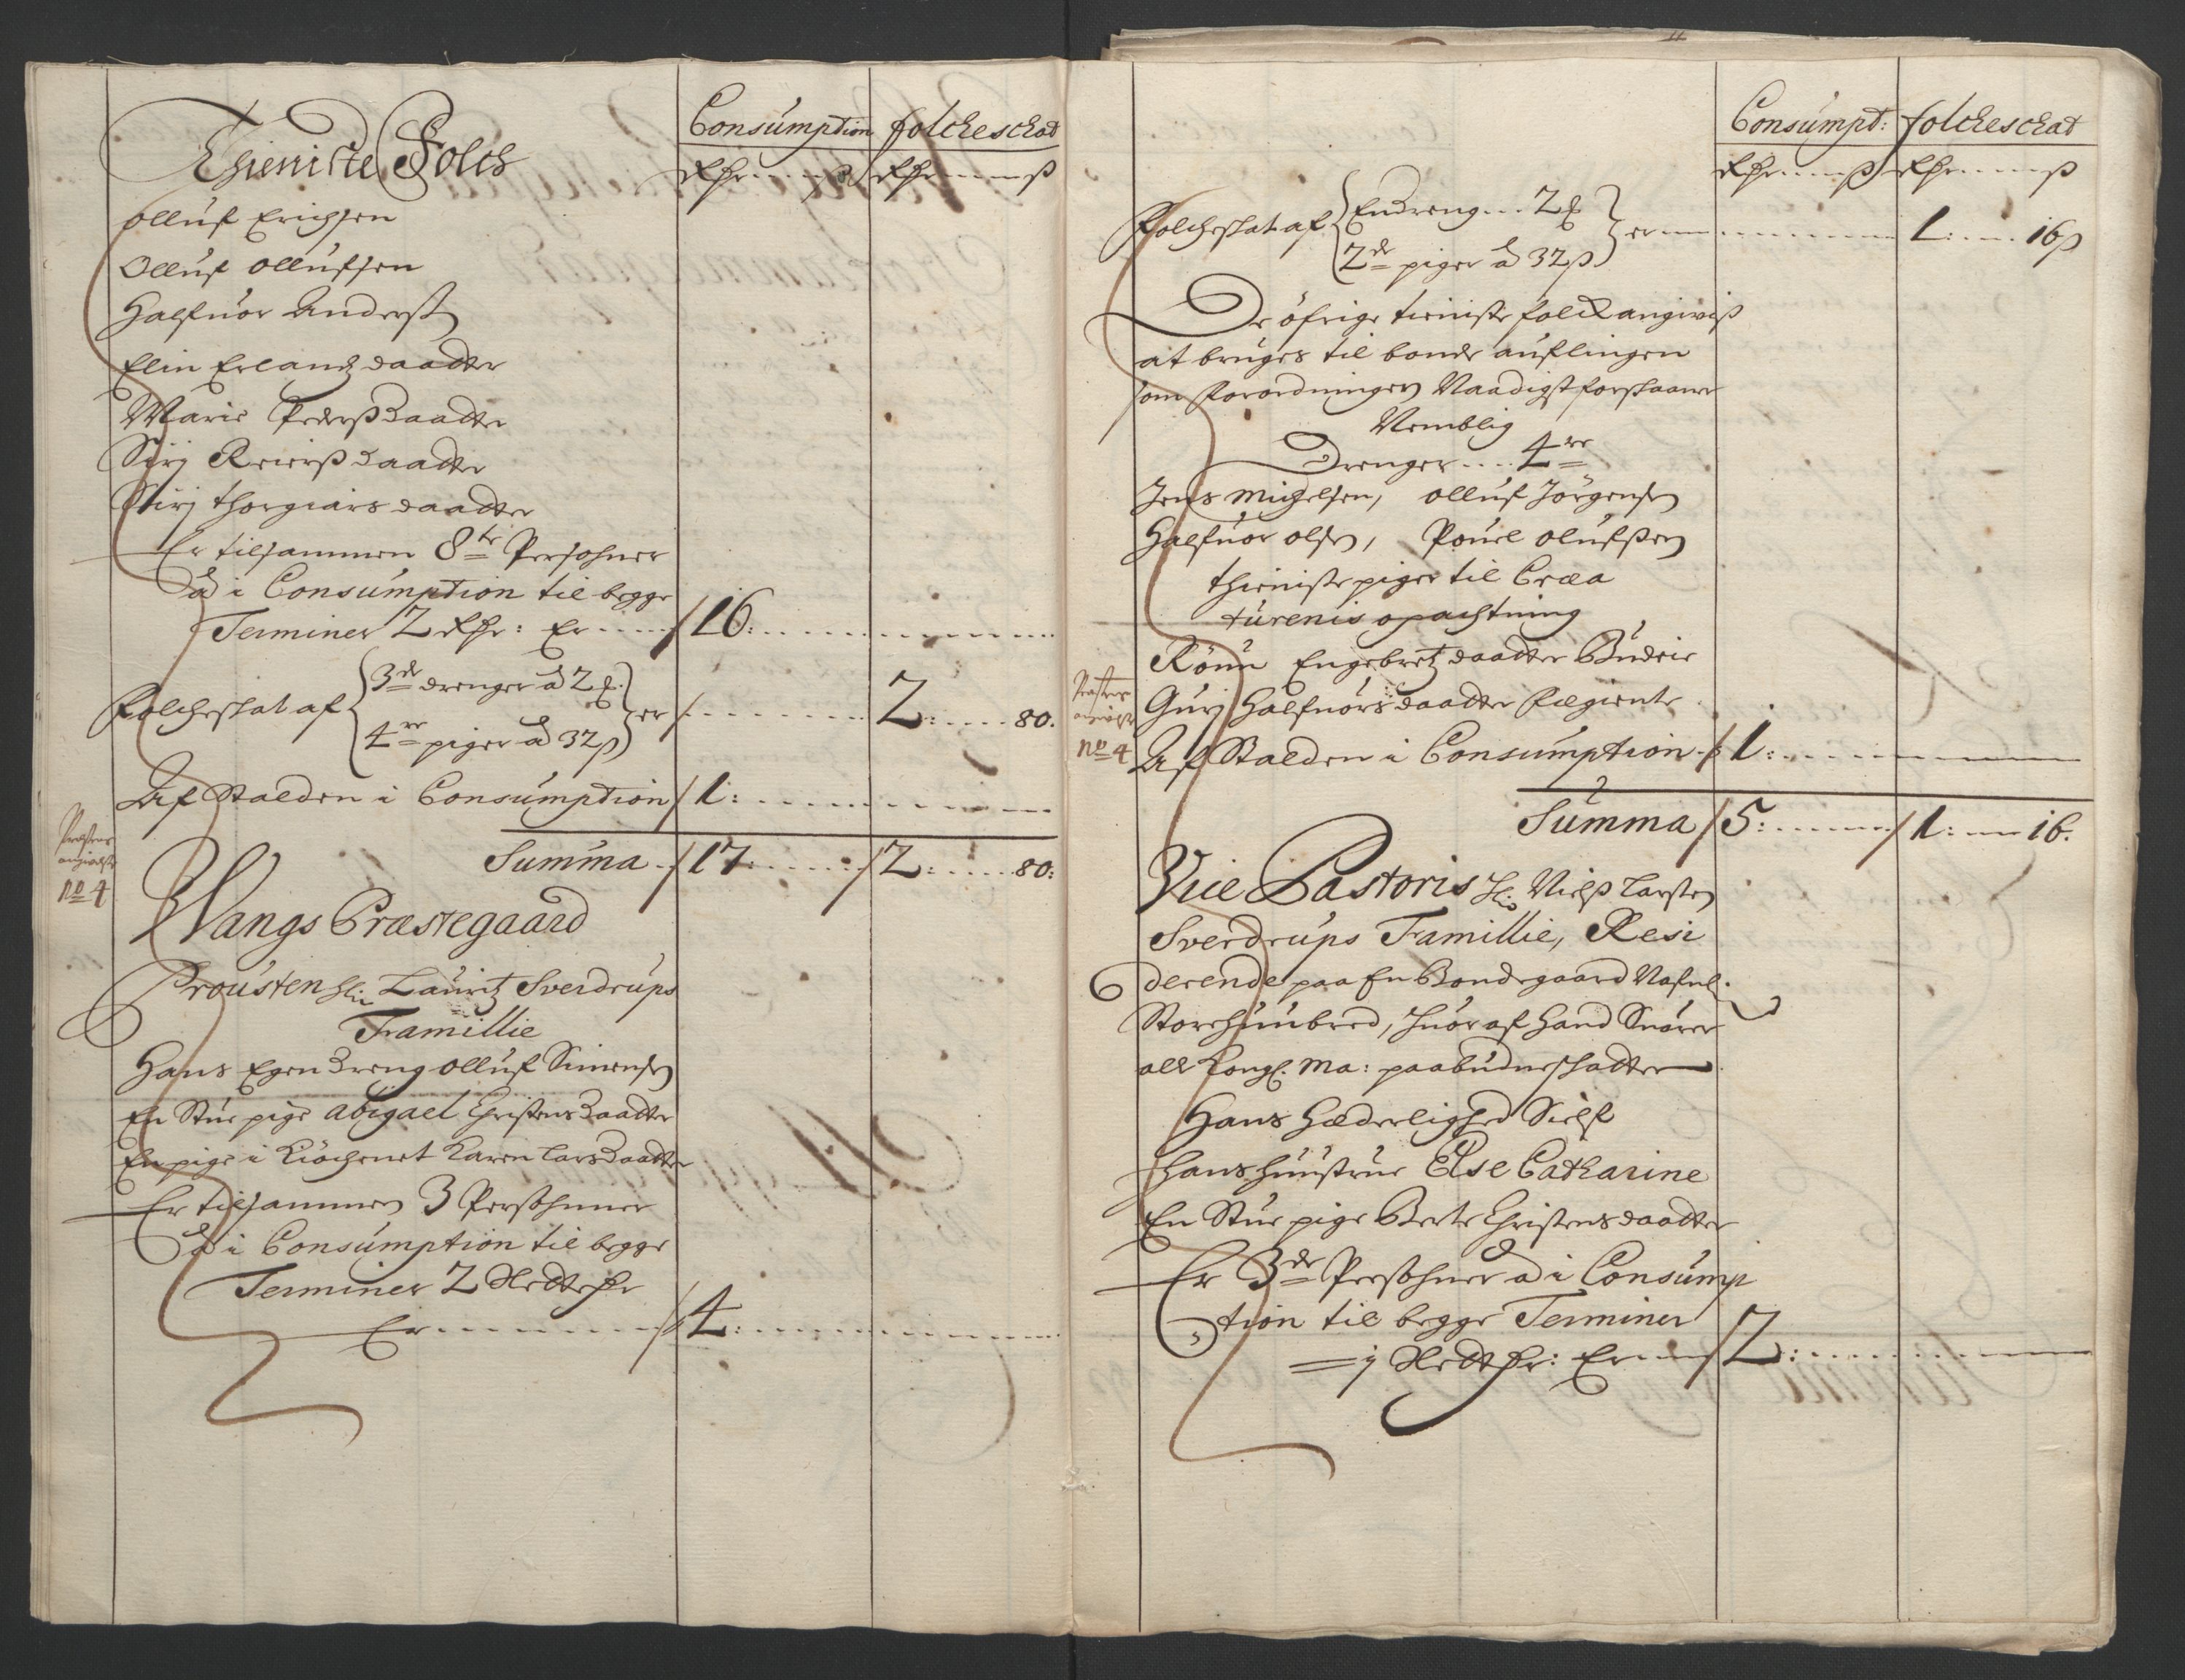 Consumption folckeschat
Thieniste Folch
Rdr ß Rdr ß
Olluf Erichsen
Olluf Ollufsen
Halfuor Anderß
Elin Erlandz daatter
Marie Pederßdaatter
Siri Reierßdaatter
Siri Thorgiærs daatter
Er tilsammen 8te Persohner
à i Consumption til begge
Terminer 2 Rdr: Er / 16:
Folcheskat af { 3de drenger à 2 ₰. 4re piger à 32 ß } er / 2: 80.
Af Stalden i Consumption / 1:
Præstens
angivelse
No 4
Summa / 17: / 2: 80:
Wangs Præstegaard
Prousten Hr. Lauritz Sverdrups
Famillie
Hans Egen dreng Olluf Simensen
En Stue pige Abigael Christensdaatter
En pige i Kiöchenet Karen Larsdaatter
Er tilsammen 3 Persohner
à i Consumption til begge
Terminer 2 Slettedr
Er / 4:
Consumpt: folckeschat
Rdr ß Rdr ß
Folcheskat af { En dreng 2 ₰ 2de piger à 32 ß } er 1: 16 ß
De öfrige tieniste folck angiviß
at bruges til bonde auflingen
som Forordningen Naadigst forskaaner
Nemblig
Drenger 4re
Jens Michelsen, Olluf Jörgensen
Halfuor Olsen, Pouel Olufßen
thieniste piger til Creea
turenis opachtning
Rönu Engebretz daatter Budeie
Guri Halfuors daatter Fægiente
Præstens
angivelse
No 4
Af Stalden i Consumption / 1:
Summa / 5: / 1: 16.
Vice Pastoris Hr. Nielß Larsen
Sverdrups Famillie, Resi
derende paa En Bondegaard Nafnl:
Storehuubred, huor af hand Suarer
alle Kongl. Ma: paabudne skatter
Hans Hæderlighed Sielf
hans huustrue Else Catharine
En Stue pige Berte Christensdaatter
Er 3de Persohner à i Consump
tion til begge Terminer
1 Slettdr: Er / 2: